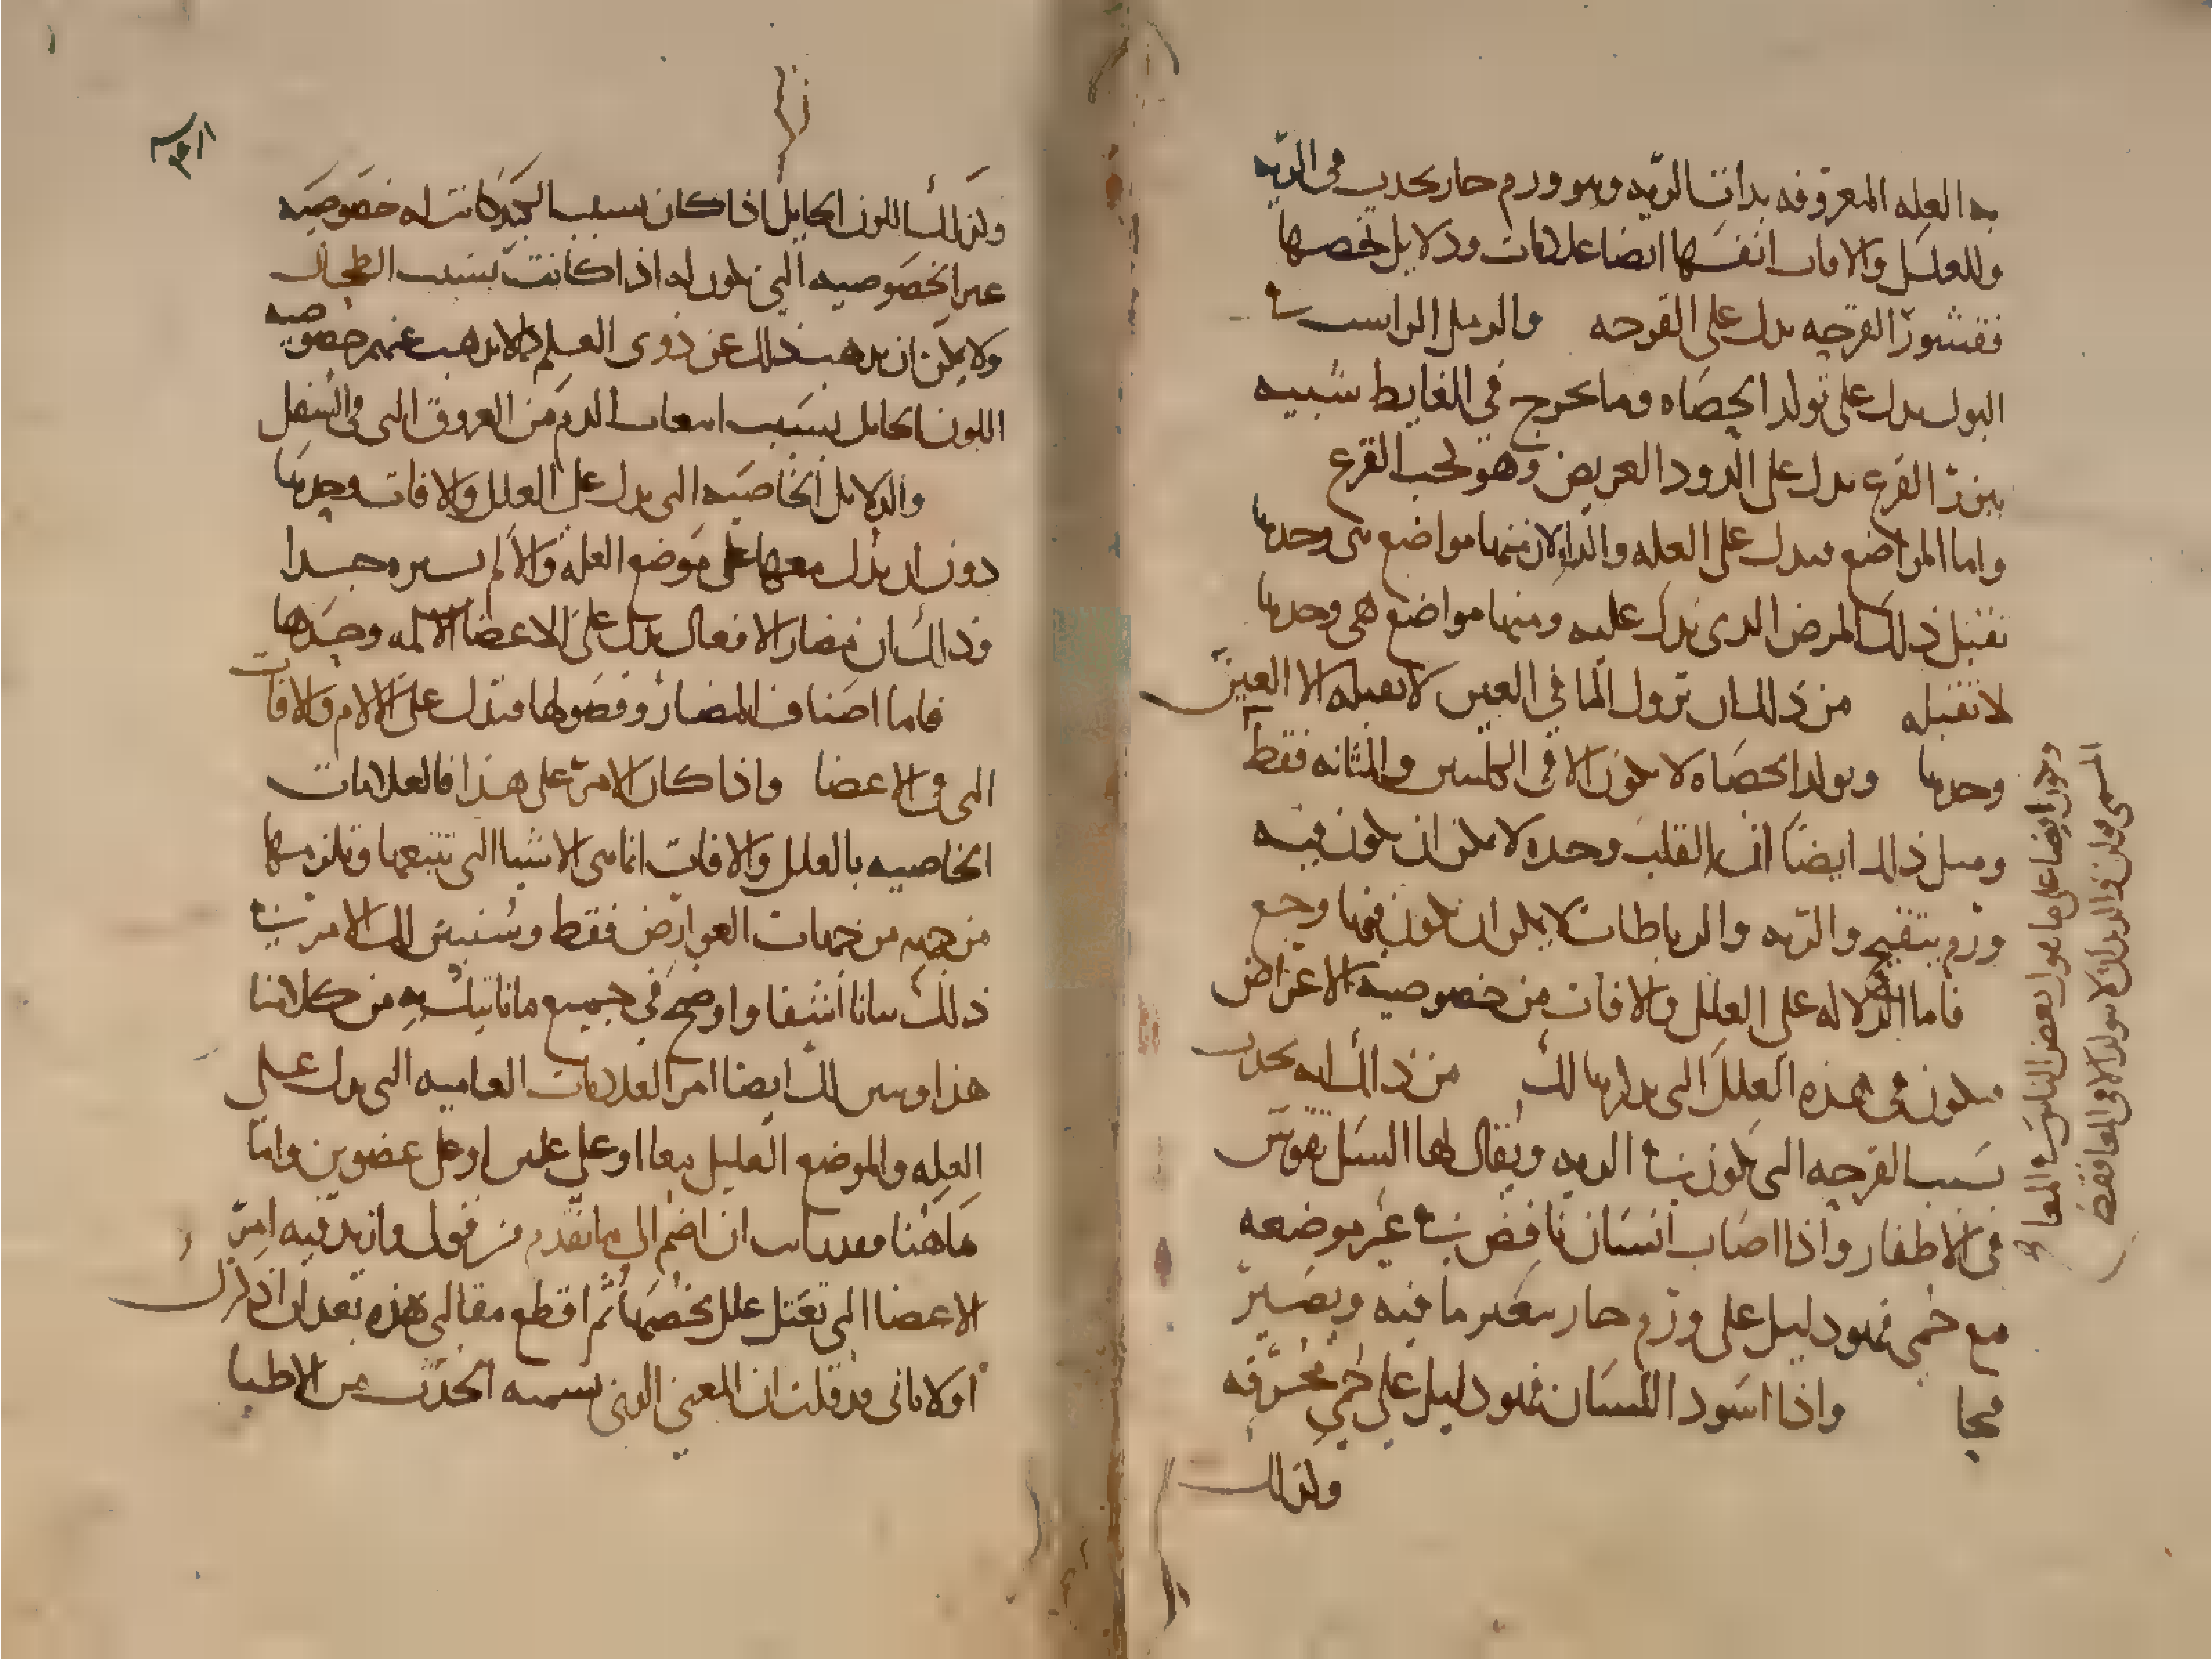 بدا العله المعروفه بذات الريه وهو ورم حار يحدث في الريه
وللعلل والافات انفسها ايضا علامات ودلايل تخصها
فقشور القرحه يدل على القرحه والرمل الراسب في
البول يدل على تولد الحصاه وما يخرج في الغايط شبيه
ببزر القرع يدل على الدود العريض وهو حب القرع
واما المواضع فيدل على العله والداء لان منها مواضع هي وحدها
تقبل ذلك المرض الذي يدل عليه ومنها مواضع هي وحدها
لا تقبله من ذلك ان نزول الما في العين لا تقبله الا العين
وحدها وتولد الحصاه لا يكون الا في الكليتين والمثانه فقط
ومثل ذلك ايضا ان القلب وحده لا يمكن ان يكون فيه
ورم يتقيح والريه والرباطات لا يمكن ان يكون فيها وجع
فاما الدلاله على العلل والافات من خصوصيه الاعراض
فيكون في هذه العلل التي بدا بها لك من ذلك انه يحدث
بسبب القرحه التي تكون في الريه ويقال لها السل تقوس
في الاظفار واذا اصاب انسان نافض في غير موضعه
مع حمى فهو دليل على ورم حار يتغير ما فيه ويصير
قيحا واذا اسود اللسان فهو دليل على حمى محرقه
ولذلك
ويكون ايضا على ما هو بعض الناس في المعا
المسمى قولن والديدان لا يتولد الا في المعا فقط
ولذلك اللون الحايل اذا كان بسبب الكبد كانت له خصوصيه
غير الخصوصيه التي تكون له اذا كانت بسبب الطحال
ولا يمكن ان يذهب ذلك عن ذوي العلم كما لا يذهب عنهم خصوصيه
اللون الحايل بسبب انبعاث الدم من العروق التي في السفل
والدلايل الخاصيه التي يدل على العلل والافات وحدها
دون ان يدل معها على موضع العله والالم يسيره جدا
وذلك ان مضار الافعال يدل على الاعضا الالمه وحدها
فاما اصناف المضار وفصولها فتدل على الالام والافات
التي في الاعضا واذا كان الامر على هذا فالعلامات
الخاصيه بالعلل والافات انما هي الاشيا التي تتبعها وتلزمها
من جهه من جهات العوارض فقط وسنبين لك الامر في
ذلك بيانا اشفا واوضح في جميع ما ناتيك به من كلامنا
هذا ونبين لك ايضا امر العلامات العاميه التي يدل على
العله والموضع العليل معا او على علتين او على عضوين واما
هاهنا فقد رايت ان اضم الى ما تقدم من قولي وازيد فيه امر
الاعضا التي تعتل علل تخصها ثم اقطع مقالتي هذه بعد ان اذكرك
اولا باني قد قلت ان المعنى الذي يسميه الحدث من الاطبا